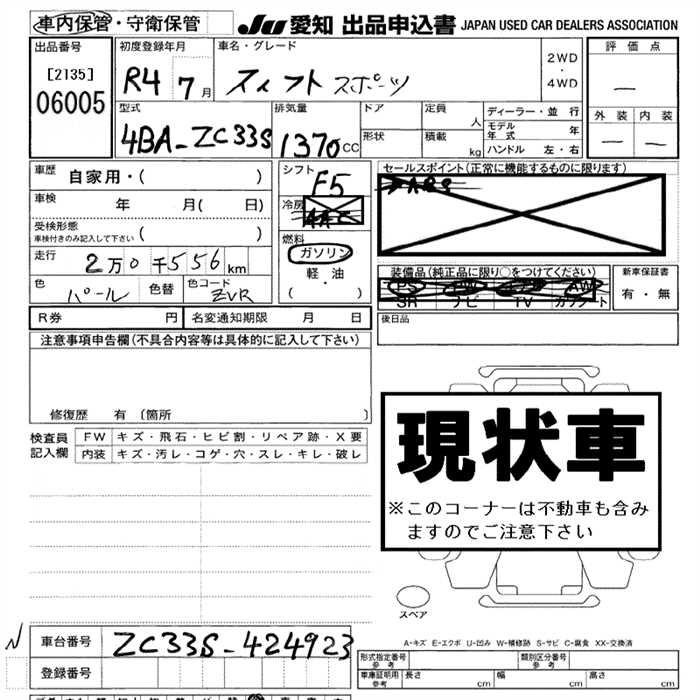 車内保管・守衛保管 JU 愛知 出品申込書 JAPAN USED CAR DEALERS ASSOCIATION
出品番号 初度登録年月 車名・グレード 2WD・4WD 評価点
[2135] R4 7月 スイフト スポーツ —
06005
型式 排気量 ドア 定員 人 ディーラー・並行 外装 内装
4BA-ZC33S 1370cc 形状 積載 kg モデル年式 年 — —
ハンドル 左・右
車歴 自家用・( ) シフト F5 セールスポイント(正常に機能するものに限ります)
車検 年 月( 日) 冷房 AAC
受検形態 車検付きのみ記入して下さい ( ) 燃料 ガソリン
走行 2万0千556km 軽・油 装備品(純正品に限り○をつけてください) 新車保証書
色 パール 色替 色コード ZVR ( ) PS PW AW 有・無
SR ナビ TV カワシート
R券 円 名変通知期限 月 日 後日品
注意事項申告欄(不具合内容等は具体的に記入して下さい)
修復歴 有 〔箇所 〕
現状車
※このコーナーは不動車も含みますのでご注意下さい
検査員記入欄 FW キズ・飛石・ヒビ割・リペア跡・X要
内装 キズ・汚レ・コゲ・穴・スレ・キレ・破レ
スペア
A-キズ E-エクボ U-凹み W-補修跡 S-サビ C-腐食 XX-交換済
車台番号 ZC33S-424923
登録番号
形式指定番号 参考 類別区分番号 参考
車庫証明用 参考 長さ cm 幅 cm 高さ cm